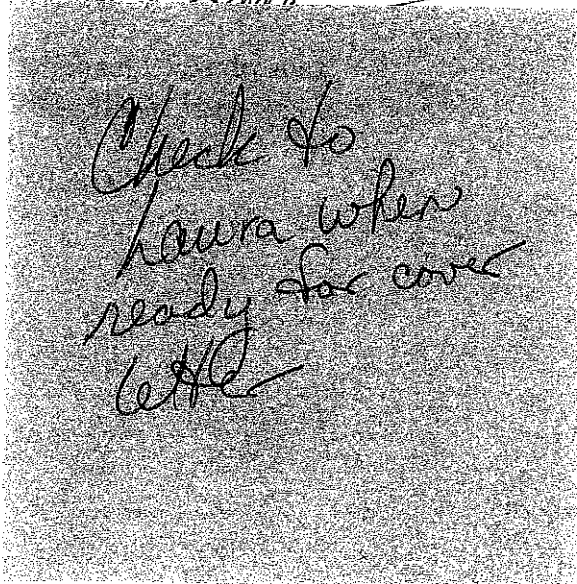 Check to
Laura when
ready for cover